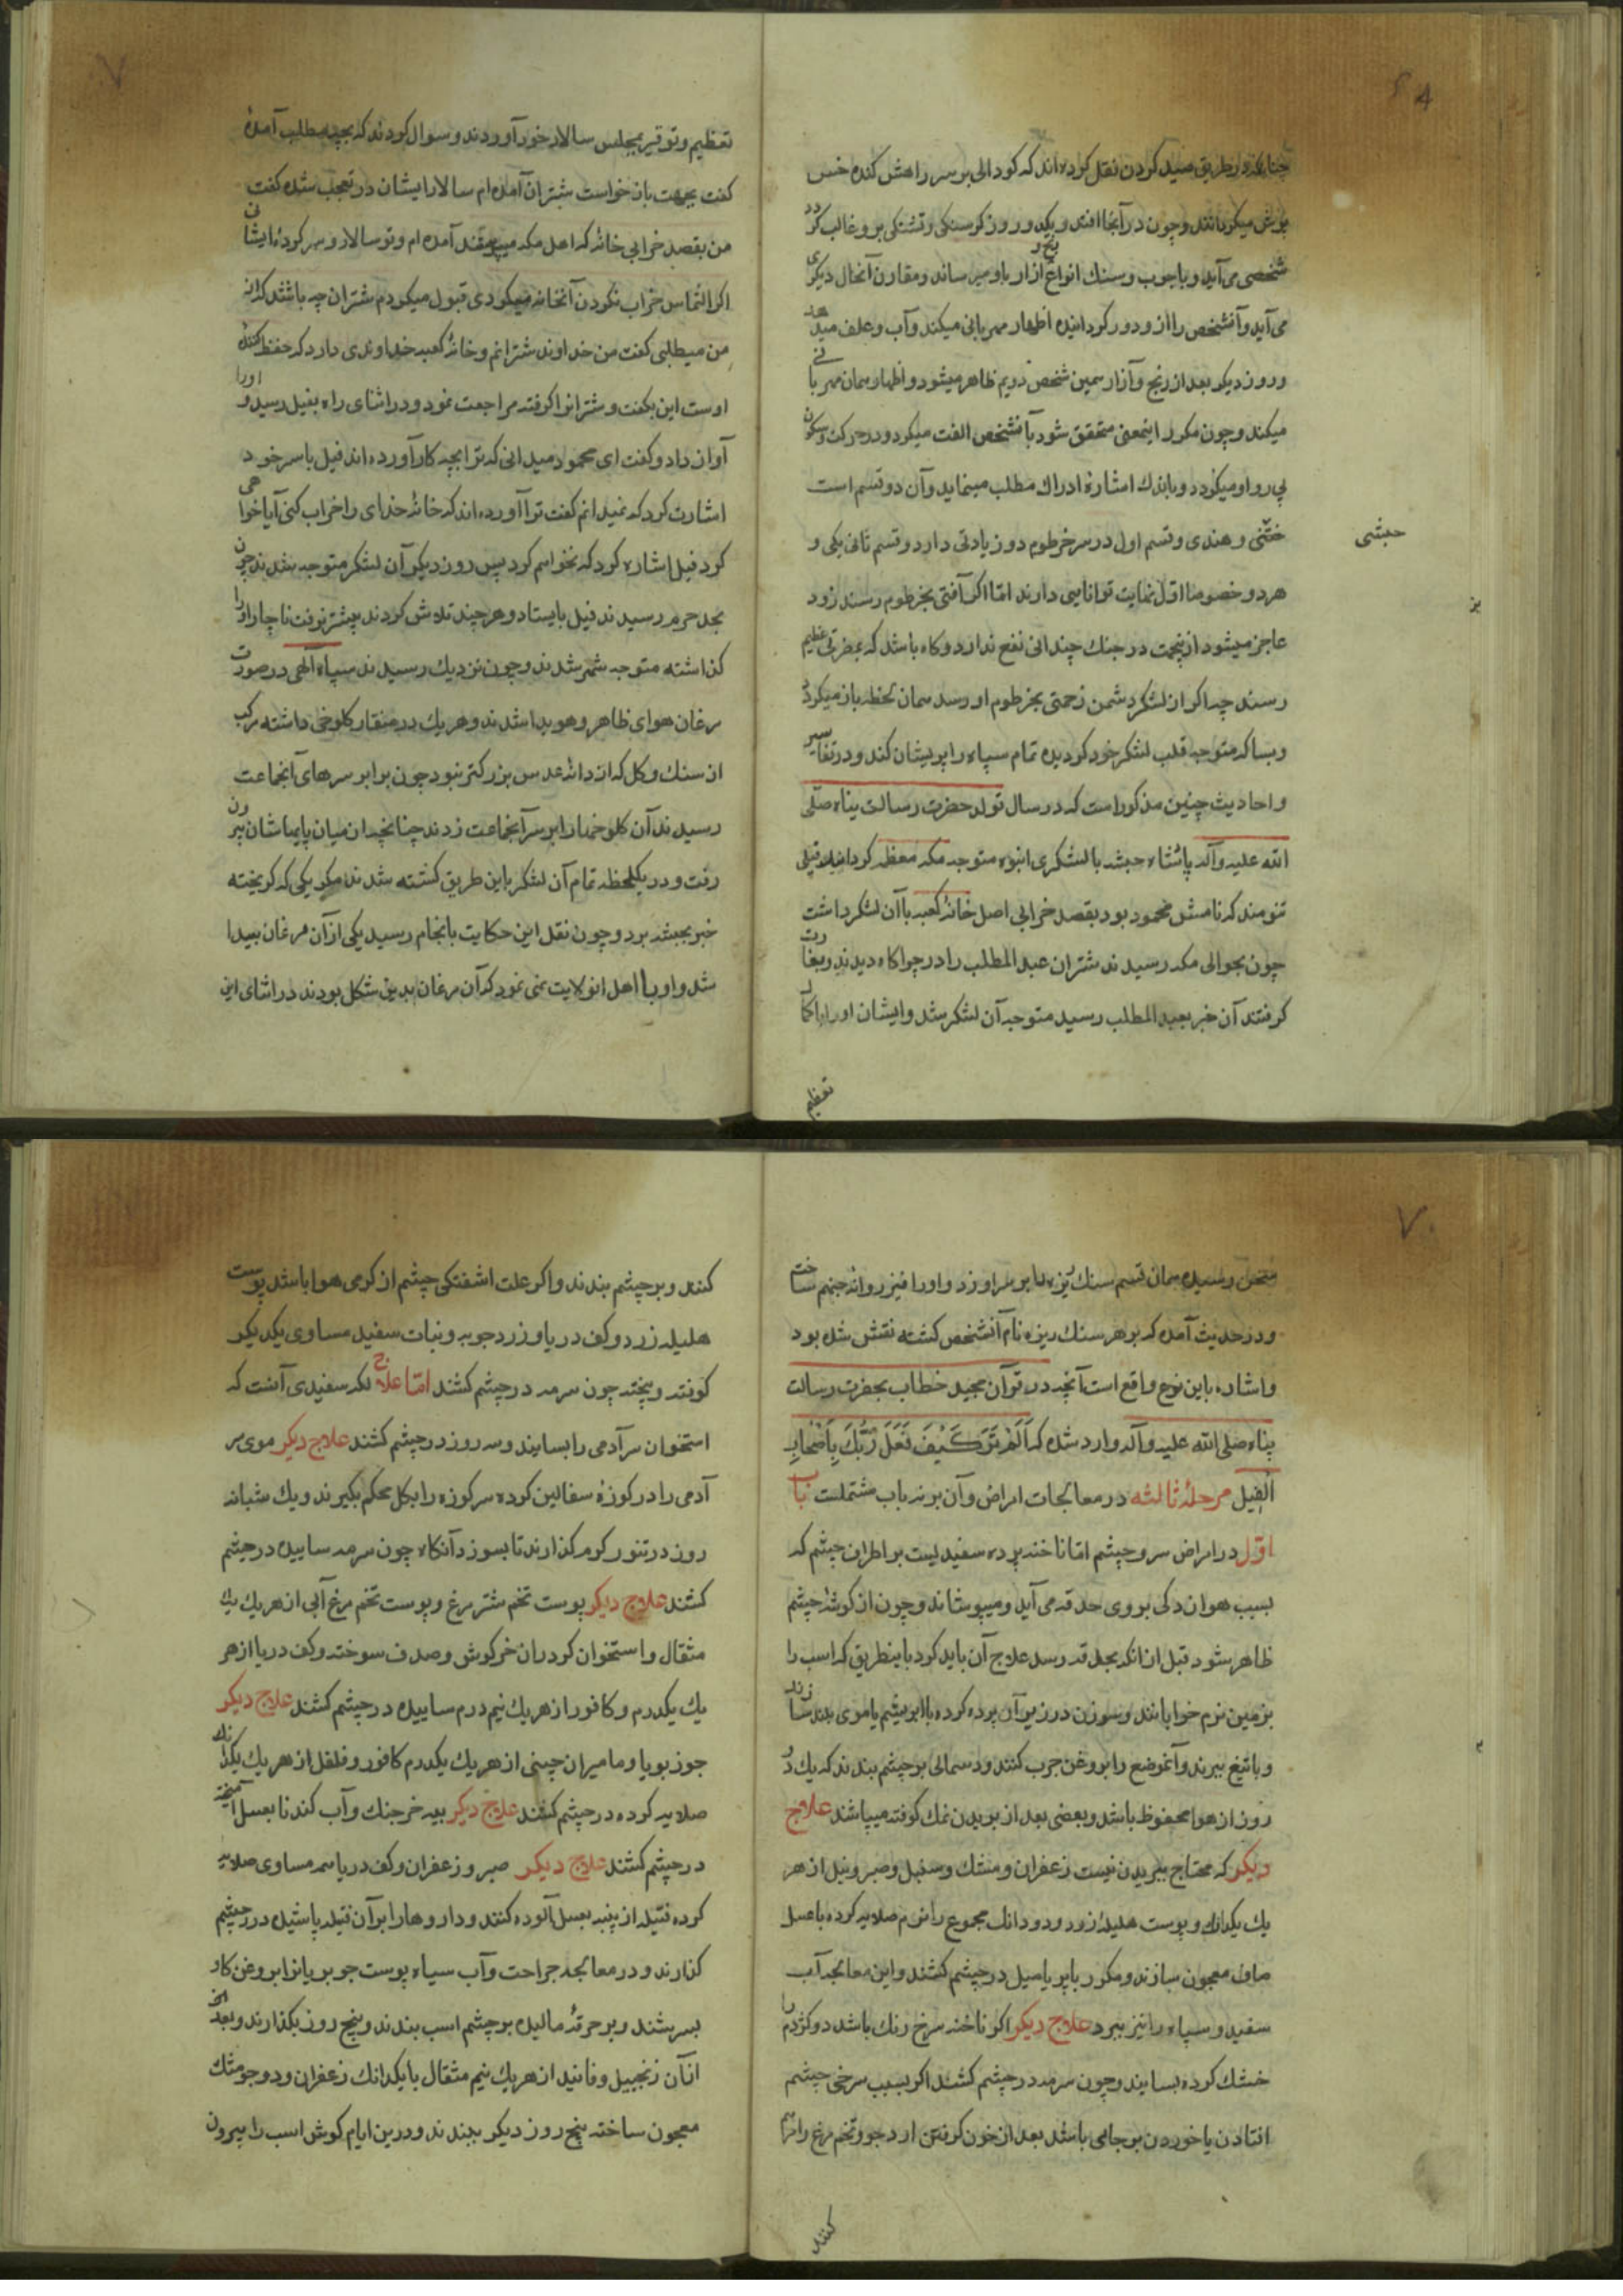 چنانکه در طریق صید کردن نقل کرده اند که کودالی بر سر راهش کنده خس
پوش میکردانند و چون در آنجا افتد و یکد و روز کرسنکی و تشنکی برو غالب کردد
شخصی می آید و با چوب و سنک انواع رنج و ازار باو میرساند و مقارن آنحال دیکری
می آید و آنشخص را از و دور کردانیده اظهار مهربانی میکند و آب و علف میدهد
و روز دیکر بعد از رنج و آزار همین شخص دویم ظاهر میشود و اظهار همان مهربانی
میکند و چون مکرر اینمعنی متحقق شود بآنشخص الفت میکرد و در حرکت و سکون
پی رو او میکردد و باندک اشاره ادراک مطلب مینماید و آن دو قسم است
ختنی و هندی و قسم اول در سر خرطوم دو زیادتی دارد و قسم ثانی یکی و
حبشی
هر دو خصوصا اول نهایت توانایی دارند امّا اکر آفتی بخرطوم رسند زود
عاجز میشود ازینجهت در جنک چندانی نفع ندارد و کاه باشد که بمضرتی عظیم
رسند چه اکر از لشکر دشمن زحمتی بخرطوم او رسد همان لحظه باز میکردد
و بسا که متوجه قلب لشکر خود کردیده تمام سپاه را پریشان کند و در تفاسیر
و احادیث چنین مذکور است که در سال تولد حضرت رسالت پناه صلّی
الله علیه و آله پادشاه حبشه با لشکری انبوه متوجه مکه معظمه کردانیده فیلی
تنومند که نامش محمود بود بقصد خرابی اصل خانهٔ کعبه با آن لشکر داشت
چون بحوالی مکه رسیدند شتران عبد المطلب را در چراکاه دیدند و بغارت
کرفتند آن خبر بعبد المطلب رسید متوجه آن لشکر شد و ایشان او را با کمال
تعظیم
تعظیم و توقیر بمجلس سالار خود آوردند و سوال کردند که بچه مطلب آمدهٔ
کفت بجهت باز خواست شتران آمده ام سالار ایشان در تعجب شده کفت
من بقصد خرابی خانهٔ که اهل مکه میپرستند آمده ام و تو سالار و سر کردهٔ ایشان
اکر التماس خراب نکردن آنخانه میکردی قبول میکردم شتران چه باشند که از
من میطلبی کفت من خداوند شترانم و خانهٔ کعبه خداوندی دارد که حفظ کنندهٔ
اوست این بکفت و شترانرا کرفته مراجعت نمود و در اثنای راه بفیل رسید و او را
آواز داد و کفت ای محمود میدانی که ترا بچه کار آورده اند فیل با سر خود
اشارت کرد که نمیدانم کفت ترا آورده اند که خانهٔ خدای را خراب کنی آیا خواهی
کرد فیل اشاره کرد که نخواهم کرد پس روز دیکر آن لشکر متوجه شدند چون
بحد حرم رسیدند فیل بایستاد و هر چند تلاش کردند پیشتر نرفت ناچار او را
کذاشته متوجه شهر شدند و چون نزدیک رسیدند سپاه آلهی در صورت
مرغان هوای ظاهر و هویدا شدند و هر یک در منقار کلوخی داشته مرکب
از سنک و کل که از دانهٔ عدس بزرکتر نبود چون برابر سرهای آنجماعت
رسیدند آن کلوخها را بر سر آنجماعت زدند چنانچه از میان پایهاشان بیرون
رفت و در یکلحظه تمام آن لشکر باین طریق کشته شدند مکر یکی که کریخته
خبر بحبشه برد و چون نقل این حکایت بانجام رسید یکی از آن مرغان پیدا
شد و او با اهل انولایت نمود که آن مرغان بدین شکل بودند در اثنای این
سخن رسیده همان قسم سنک ریزه را بر سر او زد و او را نیز روانه جهنم ساخت
و در حدیث آمده که بر هر سنک ریزه نام آنشخص کشته نقش شده بود
و اشاره باین نوع واقع است آنچه در قرآن مجید خطاب بحضرت رسالت
پناه صلی الله علیه و آله وارد شده که اَلَمْ تَرَ کَیْفَ فَعَلَ رَبُّکَ بِاَصْحَابِ
الْفِیل مرحلهٔ ثالثه در معالجات امراض و آن بر نه باب مشتملست باب
اوّل در امراض سر و چشم امّا ناخنه پرده سفیدیست بر اطراف چشم که
بسبب هوازدکی بر روی حدقه می آید و میپوشاند و چون از کوشهٔ چشم
ظاهر شود قبل از انکه بحدقه رسد علاج آن باید کرد باینطریق که اسب را
بزمین نرم خوابانند و سوزن در زیر آن پرده کرده بابریشم یا موی بلند سازند
و با تیغ ببرند و آنموضع را بروغن چرب کنند و دستمالی بر چشم بندند که یک دو
روز از هوا محفوظ باشد و بعضی بعد از بریدن نمک کوفته میپاشند علاج
دیکر که محتاج ببریدن نیست زعفران و مشک و سنبل و صبر و نیل از هر
یک یکدانک و پوست هلیلهٔ زرد و دودانک مجموع را نرم صلایه کرده با عسل
صاف معجون سازند و مکرر با پر یا میل در چشم کشند و این معالجه آب
سفید و سیاه را نیز ببرد علاج دیکر اکر ناخنه سرخ رنک باشد دو کژدم را
خشک کرده بسایند و چون سرمه در چشم کشند اکر بسبب سرخی چشم
افتادن یا خوردن بر جایی باشد بعد از خون کرفتن ارد جو و تخم مرغ را مرهم
کنند
کنند و بر چشم بندند و اکر علت اشفتکی چشم از کرمی هوا باشد پوست
هلیله زرد و کف دریا و زرد چوبه و نبات سفید مساوی یکدیکر
کوفته و پیخته چون سرمه در چشم کشند امّا علاج لکه سفیدی آنست که
استخوان سر آدمی را بسایند و سه روز در چشم کشند علاج دیکر موی سر
آدمی را در کوزهٔ سفالین کرده سر کوزه را بکل محکم بکیرند و یک شبانه
روز در تنور کرم کذارند تا بسوزد آنکاه چون سرمه ساییده در چشم
کشند علاج دیکر پوست تخم شتر مرغ و پوست تخم مرغ آبی از هر یک یک
مثقال و استخوان کرد ران خرکوش و صدف سوخته و کف دریا از هر
یک یکدرم و کافور از هر یک نیم درم ساییده در چشم کشند علاج دیکر
جوز بویا و مامیران چینی از هر یک یکدرم کافور و فلفل از هر یک یکدانک
صلایه کرده در چشم کشند علاج دیکر پیه خرچنک و آب کندنا بعسل آمیخته
در چشم کشند علاج دیکر صبر و زعفران و کف دریا سه مساوی صلایه
کرده فتیله از پنبه بعسل آلوده کنند و داروها را بر آن فتیله پاشیده در چشم
کذارند و در معالجه جراحت و آب سیاه پوست جو بریانرا بروغن کاو
بسرشند و بر خرقهٔ مالیده بر چشم اسب بندند و پنج روز بکذارند و بعد
از آن زنجبیل و فانید از هر یک نیم مثقال با یکدانک زعفران و دو جو مشک
معجون ساخته پنج روز دیکر ببندند و درین ایام کوش اسب را بیرون